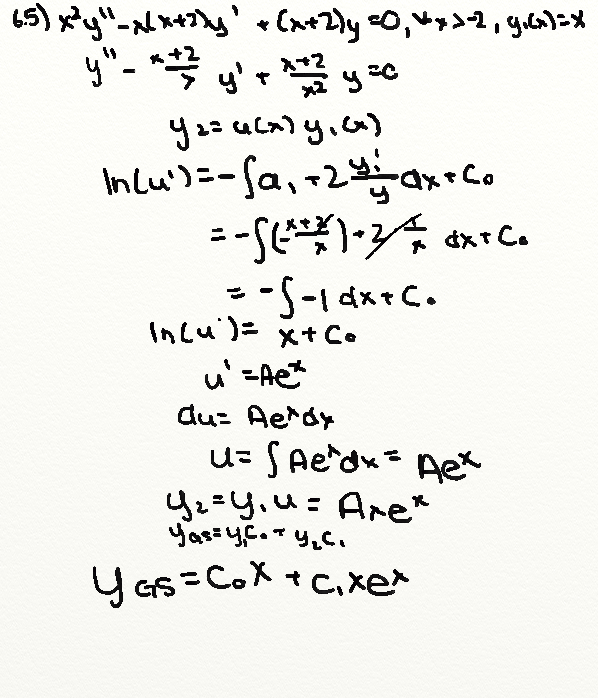 6.5) x²y'' - x(x+2)y' + (x+2)y = 0, ∀x > -2, y₁(x) = x
y'' - (x+2)/x y' + (x+2)/x² y = 0
y₂ = u(x) y₁(x)
ln(u') = -∫a₁ + 2 y₁'/y dx + C₀
= -∫(-(x+2)/x) + 2 1/x dx + C₀
= -∫-1 dx + C₀
ln(u') = x + C₀
u' = Aeˣ
du = Aeˣdx
u = ∫Aeˣdx = Aeˣ
y₂ = y₁u = Axeˣ
y_GS = y₁C₀ + y₂C₁
y_GS = C₀x + C₁xeˣ